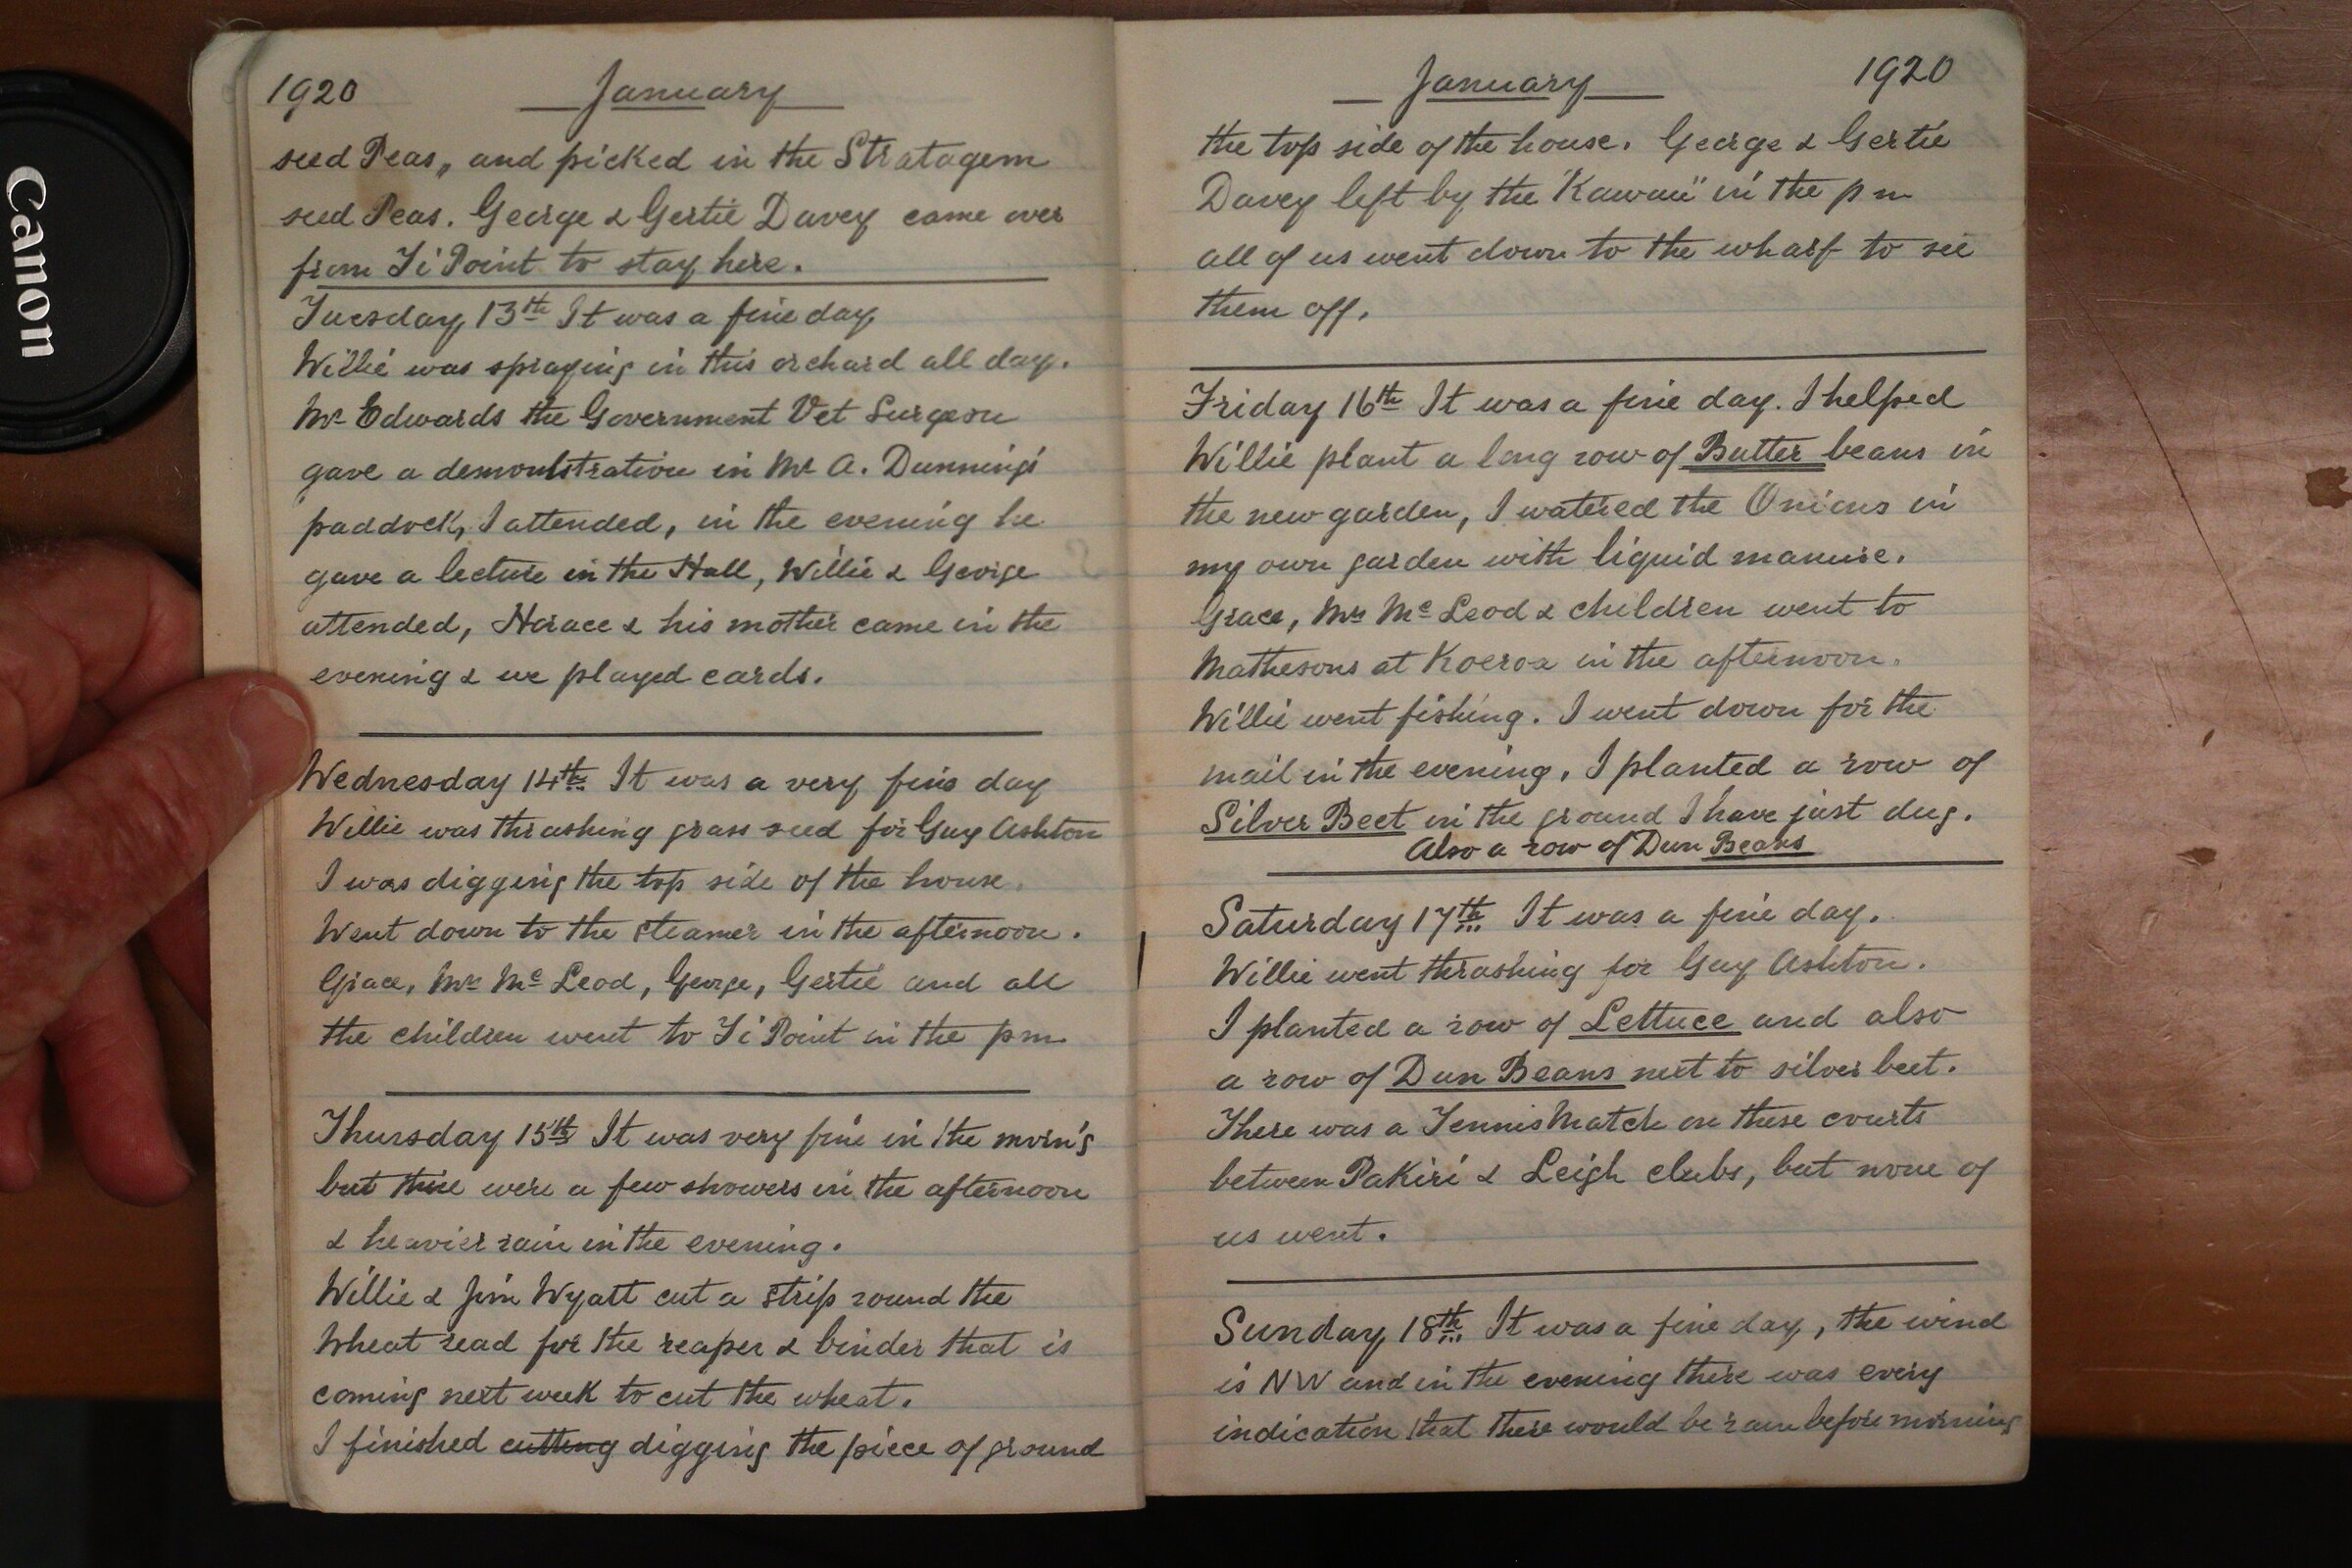 Canon
1920 January
seed Peas,, and picked in the Stratagem
seed Peas. George & Gertie Davey came over
from Ti Point to stay here.
Tuesday 13th It was a fine day
Willie was spraying in this orchard all day.
Mr Edwards the Government Vet Surgeon
gave a demonstration in Mr A. Dunning's
paddock, I attended, in the evening he
gave a lecture in the Hall, Willie & George
attended, Horace & his mother came in the
evening & we played cards.
Wednesday 14th It was a very fine day
Willie was thrashing grass seed for Guy Ashton
I was digging the top side of the house.
Went down to the steamer in the afternoon.
Grace, Mrs McLeod, George, Gertie and all
the children went to Ti Point in the pm
Thursday 15th It was very fine in the morn'g
but there were a few showers in the afternoon
& heavier rain in the evening.
Willie & Jim Wyatt cut a strip round the
Wheat read for the reaper & binder that is
coming next week to cut the wheat.
I finished cutting digging the piece of ground
January 1920
the top side of the house. George & Gertie
Davey left by the "Kawau" in the pm
all of us went down to the wharf to see
them off.
Friday 16th It was a fine day. I helped
Willie plant a long row of Butter beans in
the new garden, I watered the Onions in
my own garden with liquid manure.
Grace, Mrs McLeod & children went to
Mathesons at Koeroa in the afternoon.
Willie went fishing. I went down for the
mail in the evening. I planted a row of
Silver Beet in the ground I have just dug.
Also a row of Dun Beans
Saturday 17th It was a fine day.
Willie went thrashing for Guy Ashton.
I planted a row of Lettuce and also
a row of Dun Beans next to silver beet.
There was a Tennis Match on these courts
between Pakiri & Leigh clubs, but none of
us went.
Sunday 18th It was a fine day, the wind
is NW and in the evening there was every
indication that there would be rain before morning